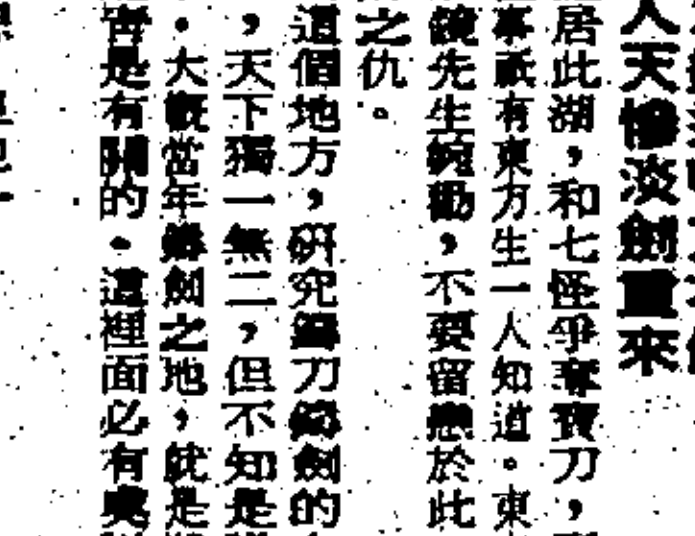 人天慘淡劍重來
居此湖，和七怪爭奪寶刀，
事祇有東方生一人知道。東
先生婉勸，不要留戀於此
之仇。
這個地方，研究鑄刀鑄劍的
，天下獨一無二，但不知是
。大概當年鑄劍之地，就是
實是有關的。這裡面必有奧